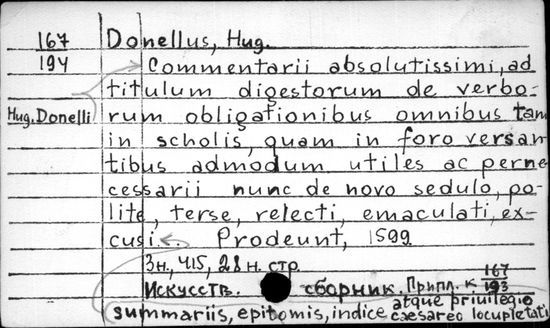 167
194
Donellus, Hug.
Hug. Donelli
Commentarii absolutissimi, ad
titulum digestorum de verbo-
rum obligationibus omnibus tam
in scholis, quam in foro versan
tibus admodum utiles ac perne
cessarii nunc de novo sedulo, po-
lite, terse, relecti, emaculati, ex-
cusi. Prodeunt, 1599.
3н., 415, 28 н. стр.
Искусств. сборник. Припл. к 167
193
summariis, epitomis, indice atque priuilegio
caesareo locupletati